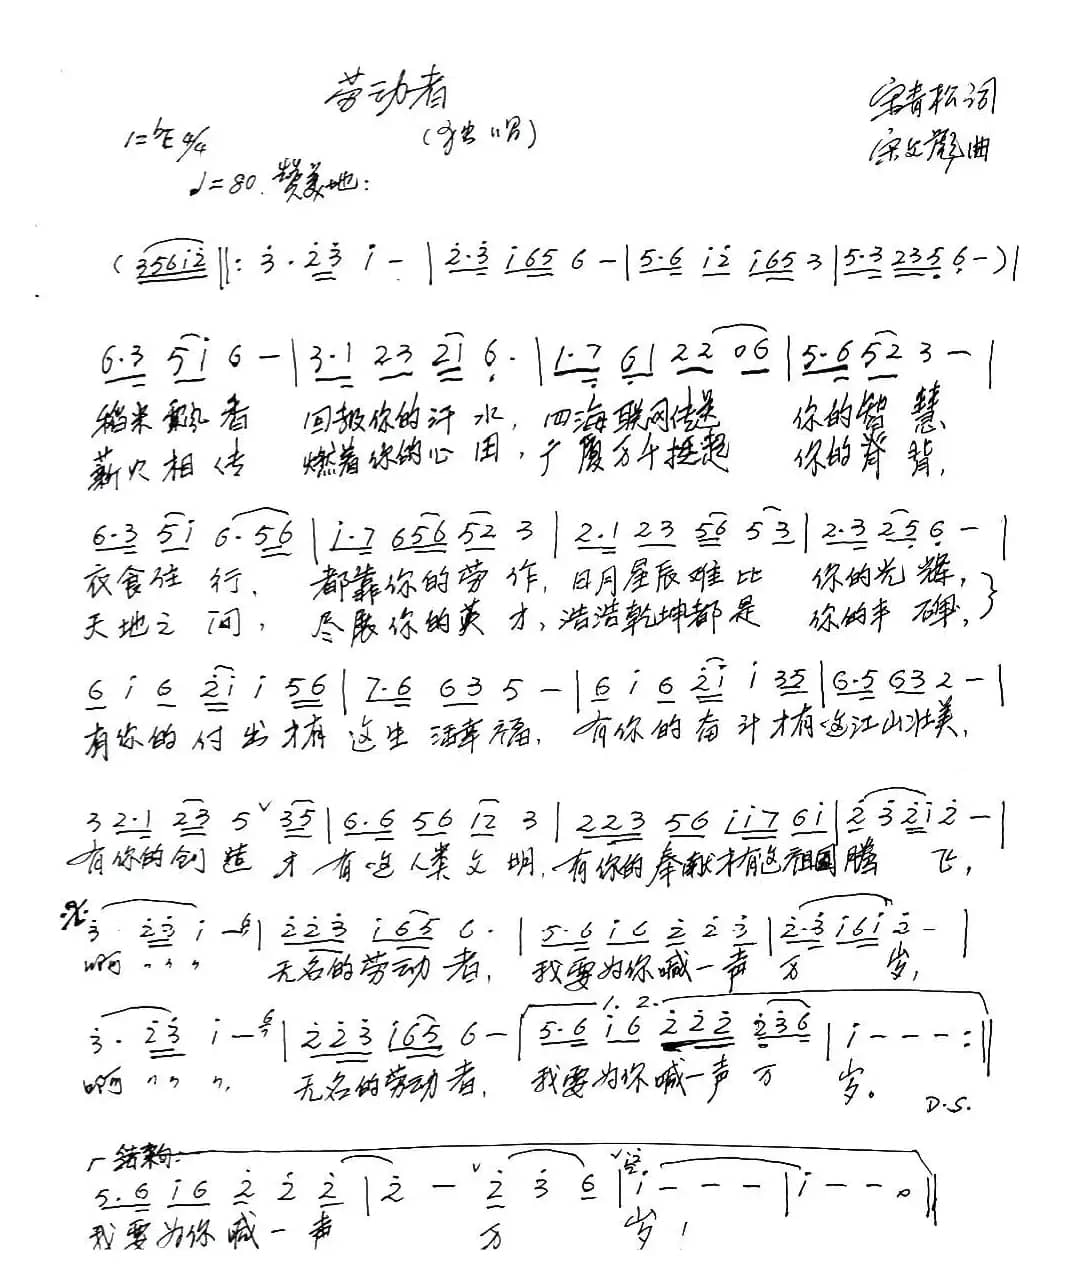 劳动者
宋青松词
1=♭E 4/4
(独唱)
宋文彪曲
♩=80. 赞美地:
(3561̇2̇‖: 3̇·2̇3̇ 1̇ - | 2̇·3̇ 1̇65 6 - | 5·6 1̇2̇ 1̇65 3 | 5·3 2356 - ) |
6·3 51̇ 6 - | 3·1 23 21 6· | 1·7 61 22 06 | 5·6 52 3 - |
稻米飘香 回报你的汗水, 四海联网传递 你的智慧、
薪火相传 燃着你的心田, 广厦万千挺起 你的脊背,
6·3 51̇ 6·56 | 1̇·7 656 52 3 | 2·1 23 56 53 | 2·3 25 6 - |
衣食住行、 都靠你的劳作, 日月星辰难比 你的光辉,
天地之间, 尽展你的英才, 浩浩乾坤都是 你的丰碑, }
6 1̇ 6 2̇1̇ 1̇ 56 | 7·6 63 5 - | 6 1̇ 6 2̇1̇ 1̇ 35 | 6·5 63 2 - |
有你的付出才有这生活幸福, 有你的奋斗才有这江山壮美,
3 2·1 23 5 ˅ 35 | 6·6 56 12 3 | 223 56 1̇1̇7 61̇ | 2̇ 3̇ 2̇1̇ 2̇ - |
有你的创造 才有这人类文明, 有你的奉献才有这祖国腾飞,
3̇· 2̇3̇ 1̇ - 6 | 2̇2̇3̇ 1̇65 6 · | 5·6 1̇6 2̇ 2̇ 3̇ | 2̇·3̇ 1̇61̇ 2̇ - |
啊 〃 〃 〃 无名的劳动者, 我要为你喊一声 万岁,
1. 2.
3̇· 2̇3̇ 1̇ - 6 | 2̇2̇3̇ 1̇65 6 - | 5·6 1̇6 2̇2̇2̇ 2̇36 | 1̇ - - - :‖
啊 〃 〃 〃, 无名的劳动者, 我要为你喊一声 万岁。
D.S.
结束句:
5·6 1̇6 2̇ 2̇ 2̇ | 2̇ - ˅ 2̇ 3̇ 6 | ˅ 1̇ - - - | 1̇ - - 0 ‖
我要为你喊一声 万岁!